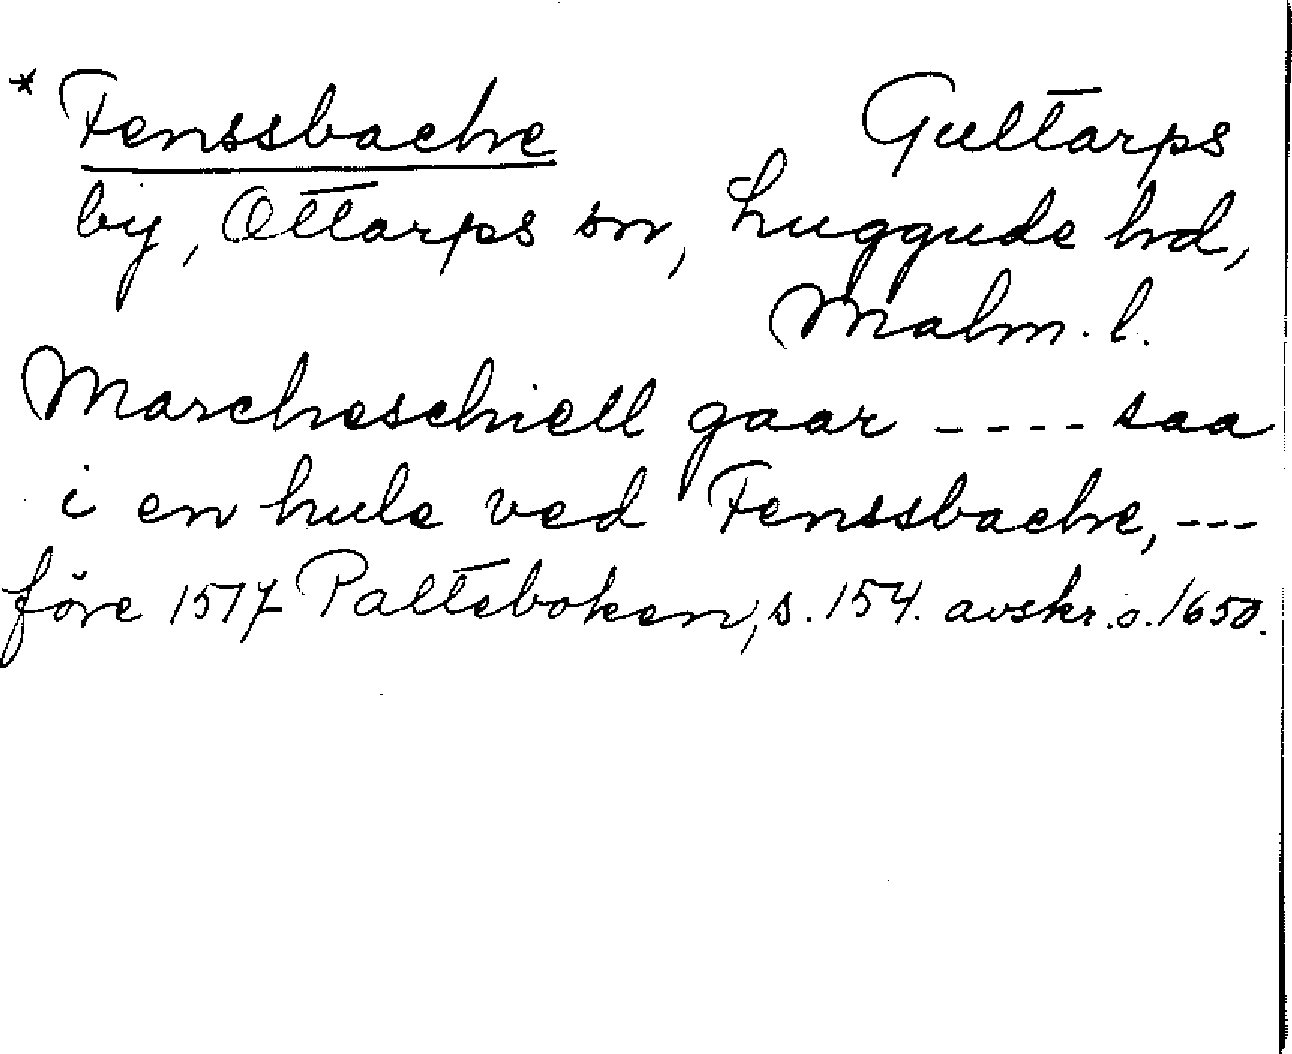 * Fenssbacke Guttarps
by, Ottarps sn, Luggude hd,
Malm. l.
Marckeschiell gaar ---- saa
i en hule ved Fenssbacke, ---
före 1517 Palteboken, s. 154. avskr. o. 1650.